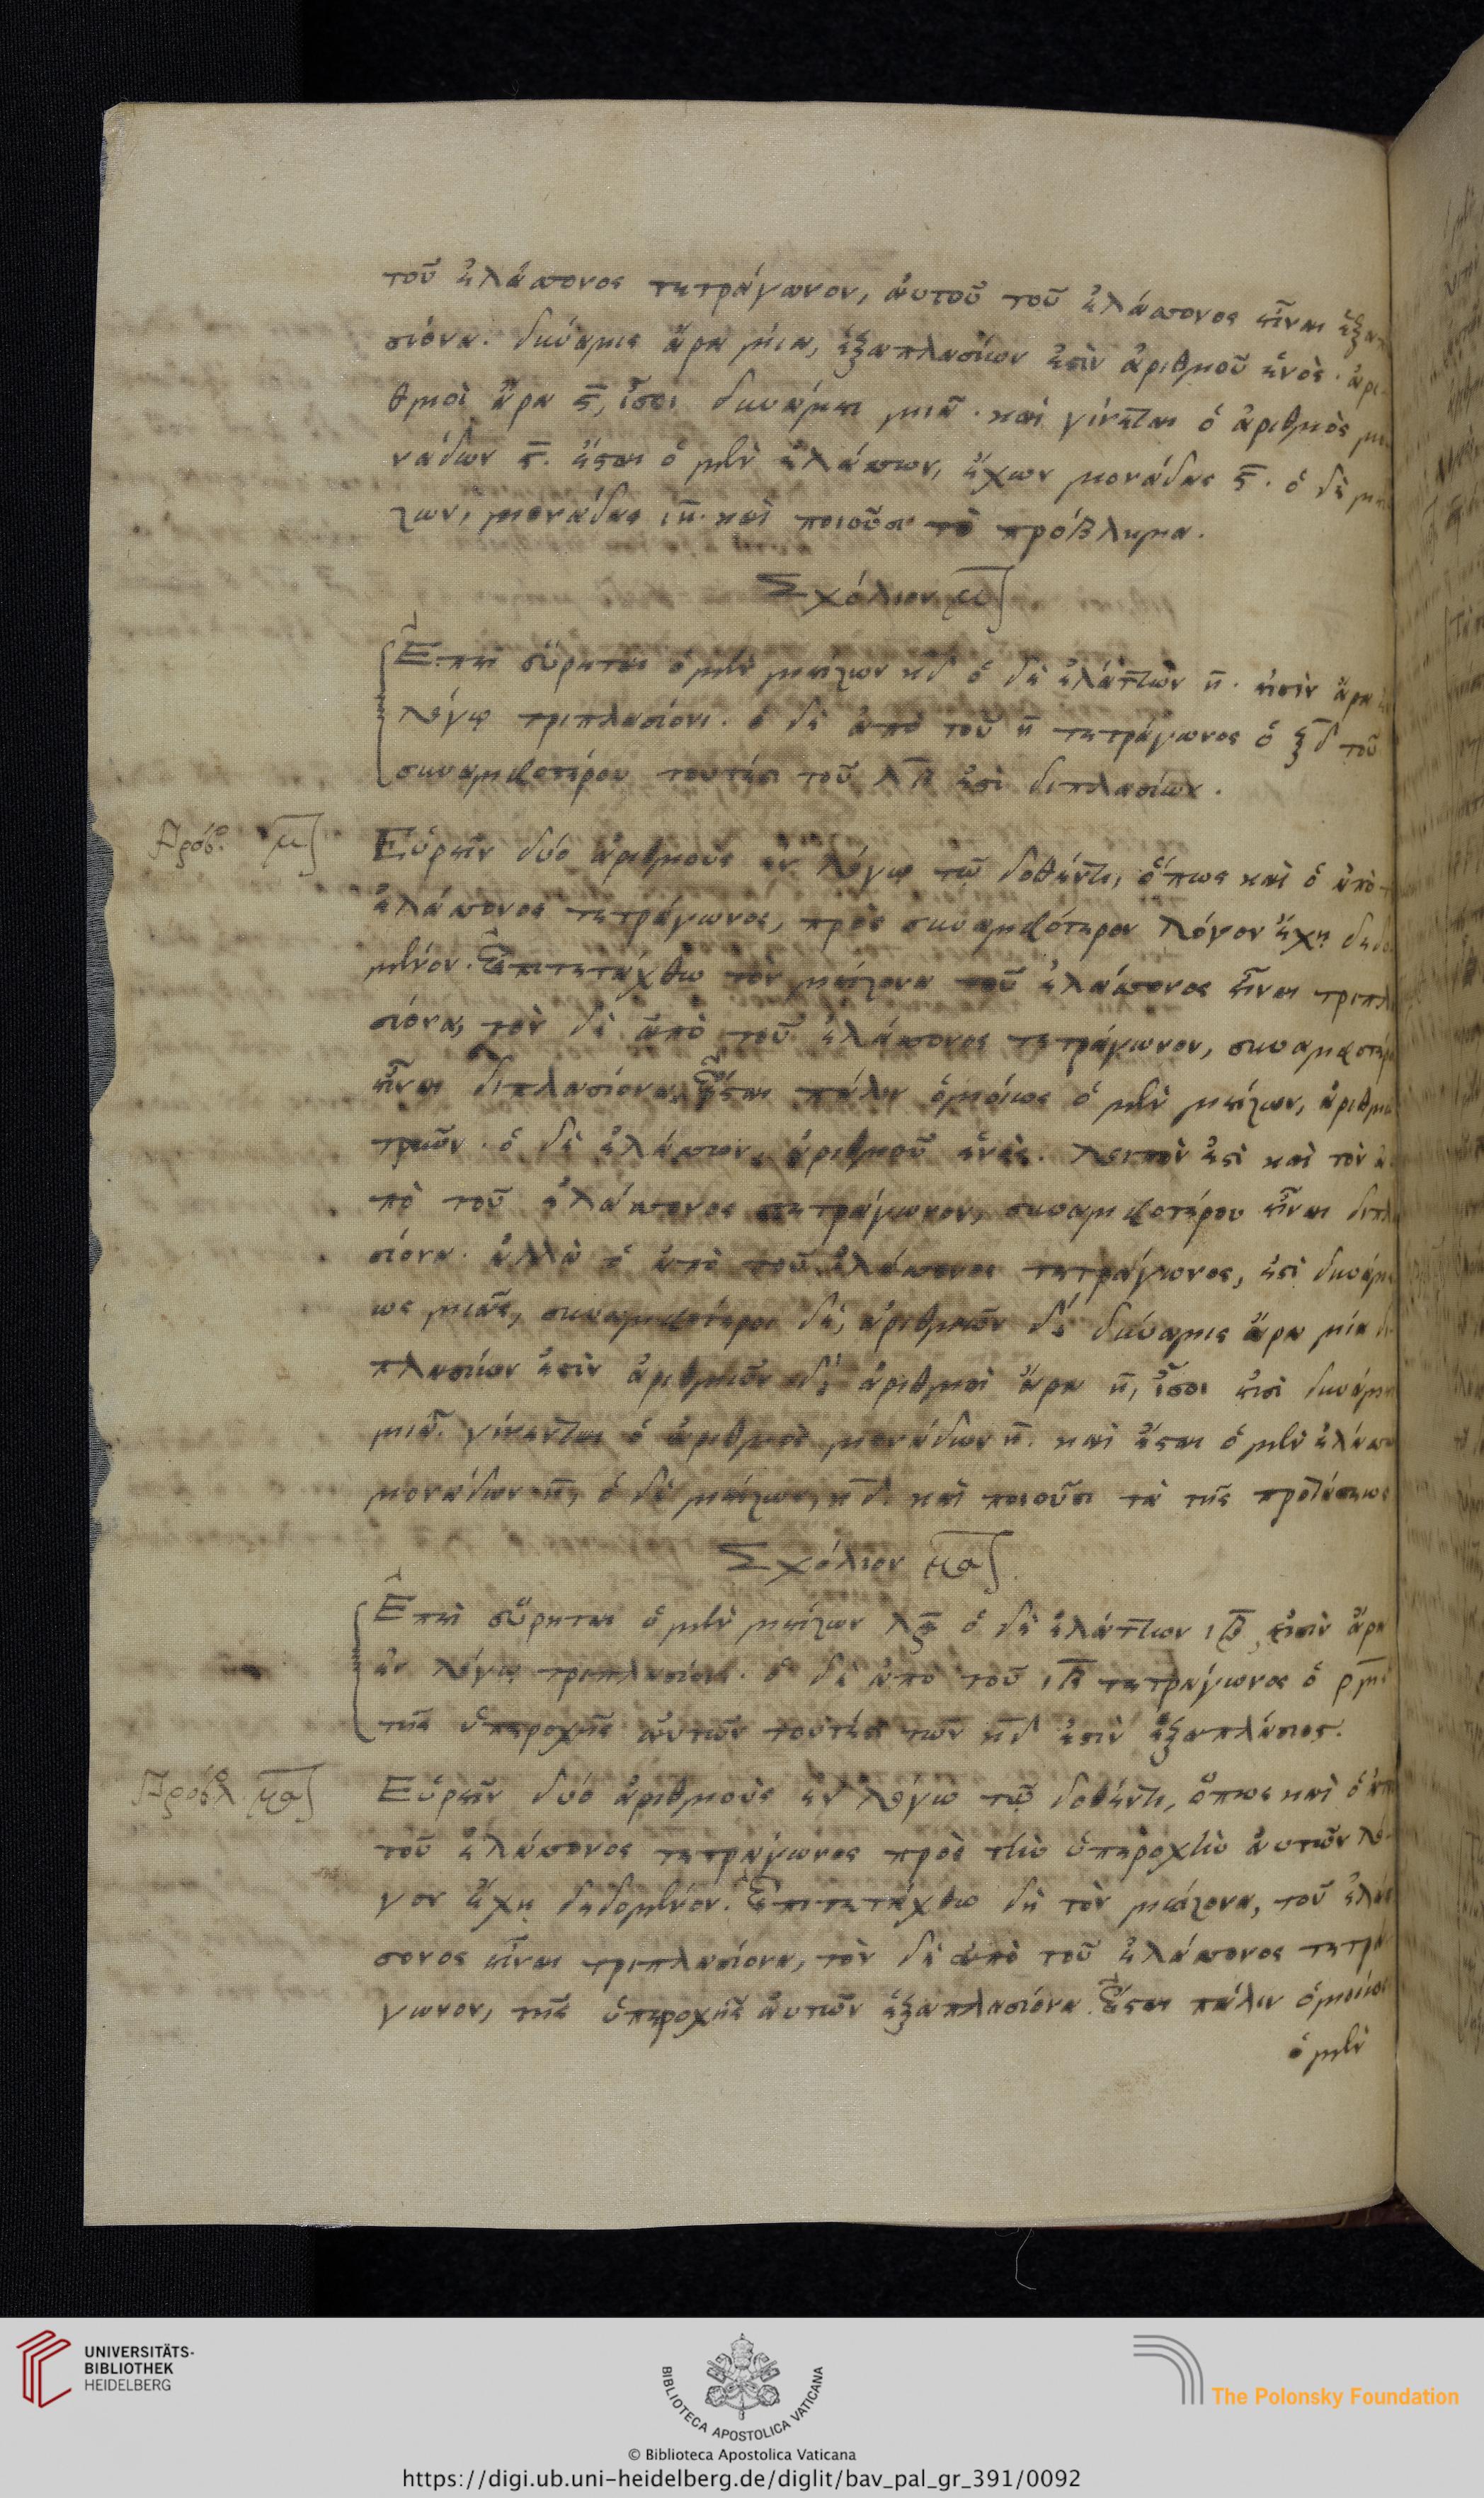 τοῦ ἐλάσσονος τετράγωνον, αὐτοῦ τοῦ ἐλάσσονος εἶναι ἑξαπ
σιόνα. δύναμις ἄρα μία, ἑξαπλασίων ἐστὶν ἀριθμοῦ ἑνός. ἀρι
θμοὶ ἄρα ϛ̄, ἴσοι δυνάμει μιᾷ. καὶ γίνεται ὁ ἀριθμὸς μο
νάδων ϛ̄. ἔσται ὁ μὲν ἐλάσσων, ἔχων μονάδας ϛ̄. ὁ δὲ μεί
ζων, μονάδας ιη̄. καὶ ποιοῦσι τὸ πρόβλημα.
Σχόλιον μ̄
Ἐπεὶ εὕρηται ὁ μὲν μείζων κδ ὁ δὲ ἐλάττων η̄. εἰσὶν ἄρα ἐν
λόγῳ τριπλασίονι. ὁ δὲ ἀπὸ τοῦ η̄ τετράγωνος ὁ ξδ τοῦ
συναμφοτέρου τουτέστι τοῦ λβ ἐστὶ διπλασίων.
Πρόβ. μ̄
Εὑρεῖν δύο ἀριθμοὺς ἐν λόγῳ τῷ δοθέντι, ὅπως καὶ ὁ ἀπὸ τ
ἐλάσσονος τετράγωνος, πρὸς συναμφότερον λόγον ἔχῃ δεδο
μένον. Ἐπιτετάχθω τὸν μείζονα τοῦ ἐλάσσονος εἶναι τριπλ
σιόνα, τὸν δὲ ἀπὸ τοῦ ἐλάσσονος τετράγωνον, συναμφοτέρ
εἶναι διπλασιόνα, ἔσται πάλιν ὁμοίως ὁ μὲν μείζων, ἀριθμῶ
τριῶν. ὁ δὲ ἐλάσσων, ἀριθμοῦ ἑνός. λοιπὸν ἐστὶ καὶ τὸν ἀ
πὸ τοῦ ἐλάσσονος τετράγωνον, συναμφοτέρου εἶναι διπλα
σιόνα. ἀλλὰ ὁ ἀπὸ τοῦ ἐλάσσονος τετράγωνος, ἐστὶ δυνάμε
ως μιᾶς, συναμφότεροι δὲ, ἀριθμῶν δ. δύναμις ἄρα μία δι
πλασίων ἐστὶν ἀριθμῶν δ. ἀριθμοὶ ἄρα η̄, ἴσοι εἰσὶ δυνάμει
μιᾷ. γίνεται ὁ ἀριθμὸς μονάδων η̄. καὶ ἔσται ὁ μὲν ἐλάσσ
μονάδων η̄, ὁ δὲ μείζων, κδ. καὶ ποιοῦσι τὰ τῆς προτάσεως
Σχόλιον μα
Ἐπεὶ εὕρηται ὁ μὲν μείζων λϛ̄ ὁ δὲ ἐλάττων ιβ, εἰσὶν ἄρα
ἐν λόγῳ τριπλασίονι. ὁ δὲ ἀπὸ τοῦ ιβ τετράγωνος ὁ ρμδ
τῆς ὑπεροχῆς αὐτῶν τουτέστι τῶν κδ ἐστὶν ἑξαπλάσιος.
Πρόβλ. μα
Εὑρεῖν δύο ἀριθμοὺς ἐν λόγῳ τῷ δοθέντι, ὅπως καὶ ὁ ἀπὸ
τοῦ ἐλάσσονος τετράγωνος πρὸς τὴν ὑπεροχὴν αὐτῶν λό
γον ἔχῃ δεδομένον. Ἐπιτετάχθω δὴ τὸν μείζονα, τοῦ ἐλάσ
σονος εἶναι τριπλασιόνα, τὸν δὲ ἀπὸ τοῦ ἐλάσσονος τετρά
γωνον, τῆς ὑπεροχῆς αὐτῶν ἑξαπλασιόνα. Ἔσται πάλιν ὁμοίως
ὁ μὲν
UNIVERSITÄTS-
BIBLIOTHEK
HEIDELBERG
BIBLIOTECA APOSTOLICA VATICANA
The Polonsky Foundation
© Biblioteca Apostolica Vaticana
https://digi.ub.uni-heidelberg.de/diglit/bav_pal_gr_391/0092